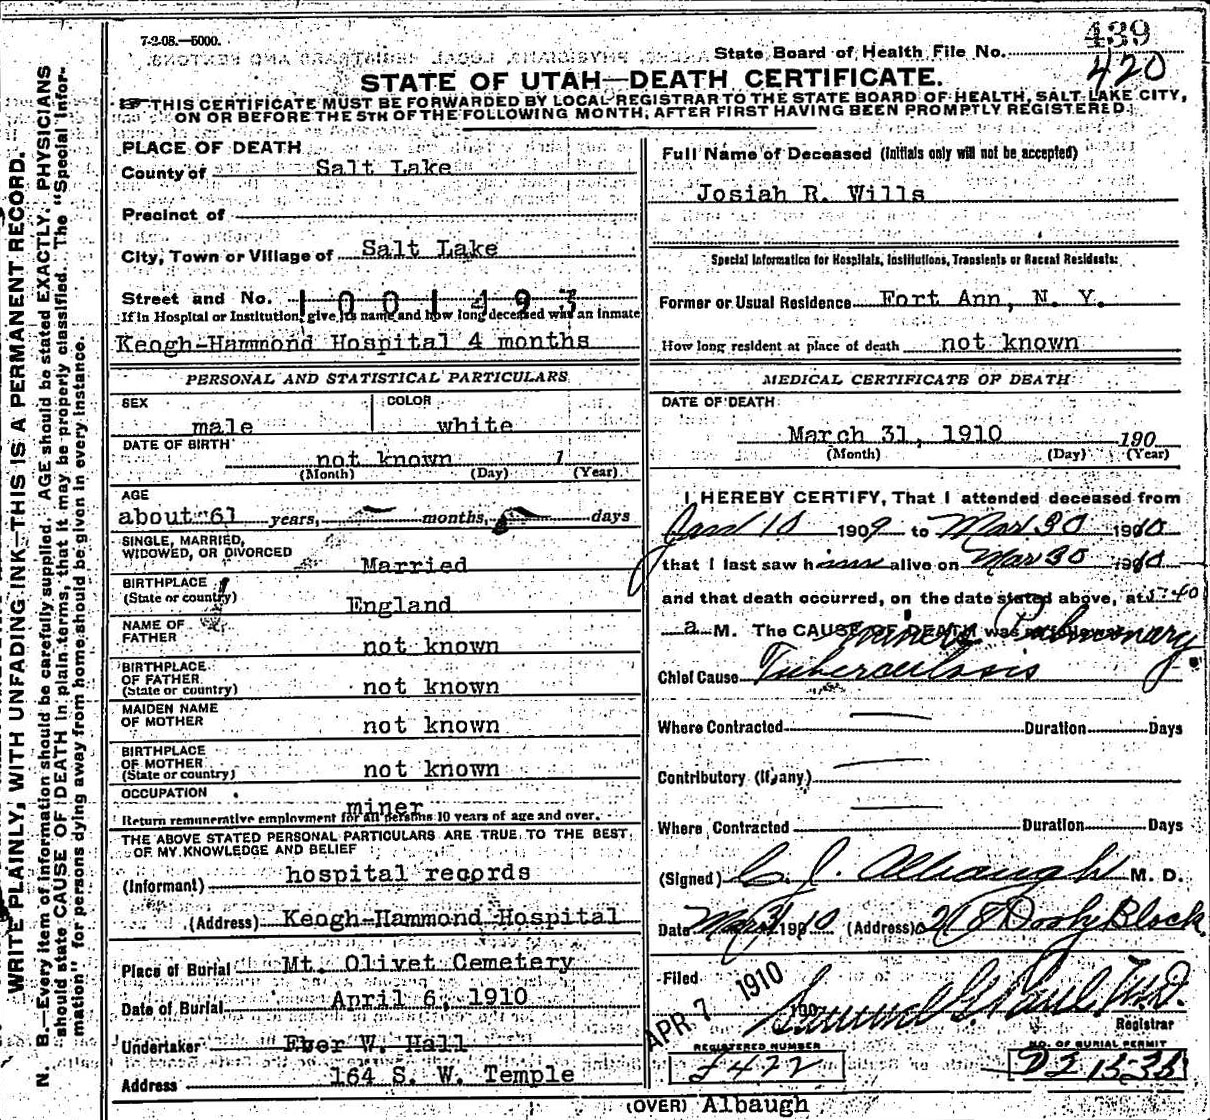 7-2-08.—5000.
State Board of Health File No. 439
420
STATE OF UTAH—DEATH CERTIFICATE.
THIS CERTIFICATE MUST BE FORWARDED BY LOCAL REGISTRAR TO THE STATE BOARD OF HEALTH, SALT LAKE CITY,
ON OR BEFORE THE 5TH OF THE FOLLOWING MONTH, AFTER FIRST HAVING BEEN PROMPTLY REGISTERED.
PLACE OF DEATH
County of Salt Lake
Precinct of
City, Town or Village of Salt Lake
Street and No. 1001493
If in Hospital or Institution, give its name and how long deceased was an inmate
Keogh-Hammond Hospital 4 months
PERSONAL AND STATISTICAL PARTICULARS
SEX male COLOR white
DATE OF BIRTH not known 1
(Month) (Day) (Year)
AGE
about 61 years, months, days
SINGLE, MARRIED,
WIDOWED, OR DIVORCED Married
BIRTHPLACE
(State or country) England
NAME OF
FATHER not known
BIRTHPLACE
OF FATHER
(State or country) not known
MAIDEN NAME
OF MOTHER not known
BIRTHPLACE
OF MOTHER
(State or country) not known
OCCUPATION miner
Return remunerative employment for all persons 10 years of age and over.
THE ABOVE STATED PERSONAL PARTICULARS ARE TRUE TO THE BEST
OF MY KNOWLEDGE AND BELIEF
(Informant) hospital records
(Address) Keogh-Hammond Hospital
Place of Burial Mt. Olivet Cemetery
Date of Burial April 6, 1910
Undertaker Eber W. Hall
Address 164 S. W. Temple
Full Name of Deceased (Initials only will not be accepted)
Josiah R. Wills
Special Information for Hospitals, Institutions, Transients or Recent Residents:
Former or Usual Residence Fort Ann, N. Y.
How long resident at place of death not known
MEDICAL CERTIFICATE OF DEATH
DATE OF DEATH
March 31, 1910 190
(Month) (Day) (Year)
I HEREBY CERTIFY, That I attended deceased from
10 1909 to Mar 30 1910
that I last saw him alive on Mar 30 1910
and that death occurred, on the date stated above, at
a M. The CAUSE OF DEATH was Miners Pulmonary
Chief Cause Tuberculosis
Where Contracted Duration Days
Contributory (If any)
Where Contracted Duration Days
(Signed) C. J. Albaugh M. D.
Date Mar 31 1910 (Address) 218 Dooly Block
Filed APR 7 1910 190
Samuel G. Paul M.D.
Registrar
REGISTERED NUMBER
NO. OF BURIAL PERMIT
(OVER) Albaugh
WRITE PLAINLY, WITH UNFADING INK—THIS IS A PERMANENT RECORD.
N. B.—Every item of information should be carefully supplied. AGE should be stated EXACTLY. PHYSICIANS
should state CAUSE OF DEATH in plain terms, that it may be properly classified. The "Special Infor-
mation" for persons dying away from home should be given in every instance.